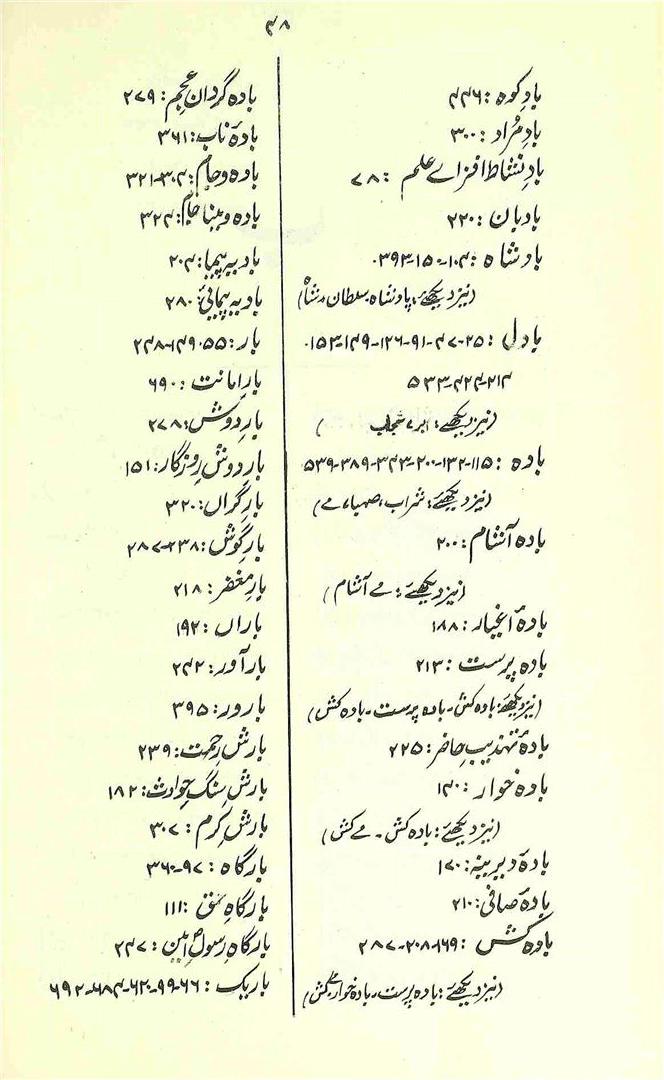 ۴۸
بادِ کوہ : ۴۴۶
بادِ مُراد : ۳۰۰
بادِ نشاط افزاے علم : ۷۸
بادبان : ۲۲۰
بادشاہ : ۱۰۴-۱۵۰-۳۹۳
(نیز دیکھئے : پادشاہ۔ سلطان، شاہ)
بادل : ۲۵-۴۷-۹۱-۱۲۶-۱۴۹-۱۵۳-
۲۱۴-۴۲۴-۵۳۳
(نیز دیکھئے : ابر، سحاب)
بادہ : ۱۱۵-۱۳۲-۲۰۰-۳۴۳-۳۸۹-۵۳۹
(نیز دیکھئے : شراب، صہبا، مے)
بادہ آشام : ۲۰۰
(نیز دیکھئے : مے آشام)
بادۂ اغیار : ۱۸۸
بادہ پرست : ۲۱۳
(نیز دیکھئے : بادہ کش۔ بادہ پرست۔ بادہ کش)
بادۂ تہذیبِ حاضر : ۲۲۵
بادہ خوار : ۱۴۰
(نیز دیکھئے : بادہ کش۔ مے کش)
بادۂ دیرینہ : ۱۷۰
بادۂ صافی : ۲۱۰
بادہ کش : ۱۶۹-۲۰۸-۲۸۷
(نیز دیکھئے : بادہ پرست، بادہ خوار، مے کش)
بادہ گردانِ عجم : ۲۷۹
بادۂ ناب : ۳۶۱
بادہ و جام : ۳۰۴-۳۲۱
بادہ و مینا جام : ۳۲۴
بادیہ پیما : ۲۰۴
بادیہ پیمائی : ۲۸۰
بار : ۵۵-۱۴۹-۲۴۸
بارِ امانت : ۶۹۰
بارِ دوش : ۲۷۸
بارِ دوشِ روزگار : ۱۵۱
بارِ گراں : ۳۲۰
بارِ گوش : ۲۳۸-۲۸۷
بارِ مغفر : ۲۱۸
باراں : ۱۹۲
بار آور : ۲۴۲
بارور : ۳۹۵
بارشِ رحمت : ۲۳۹
بارشِ سنگِ حوادث : ۱۸۲
بارشِ کرم : ۳۰۷
بارگاہ : ۹۷-۳۶۰
بارگاہِ حق : ۱۱۱
بارگاہِ رسولِ امین : ۲۴۷
باریک : ۶۶-۹۹-۶۲۰-۶۸۴-۶۹۲